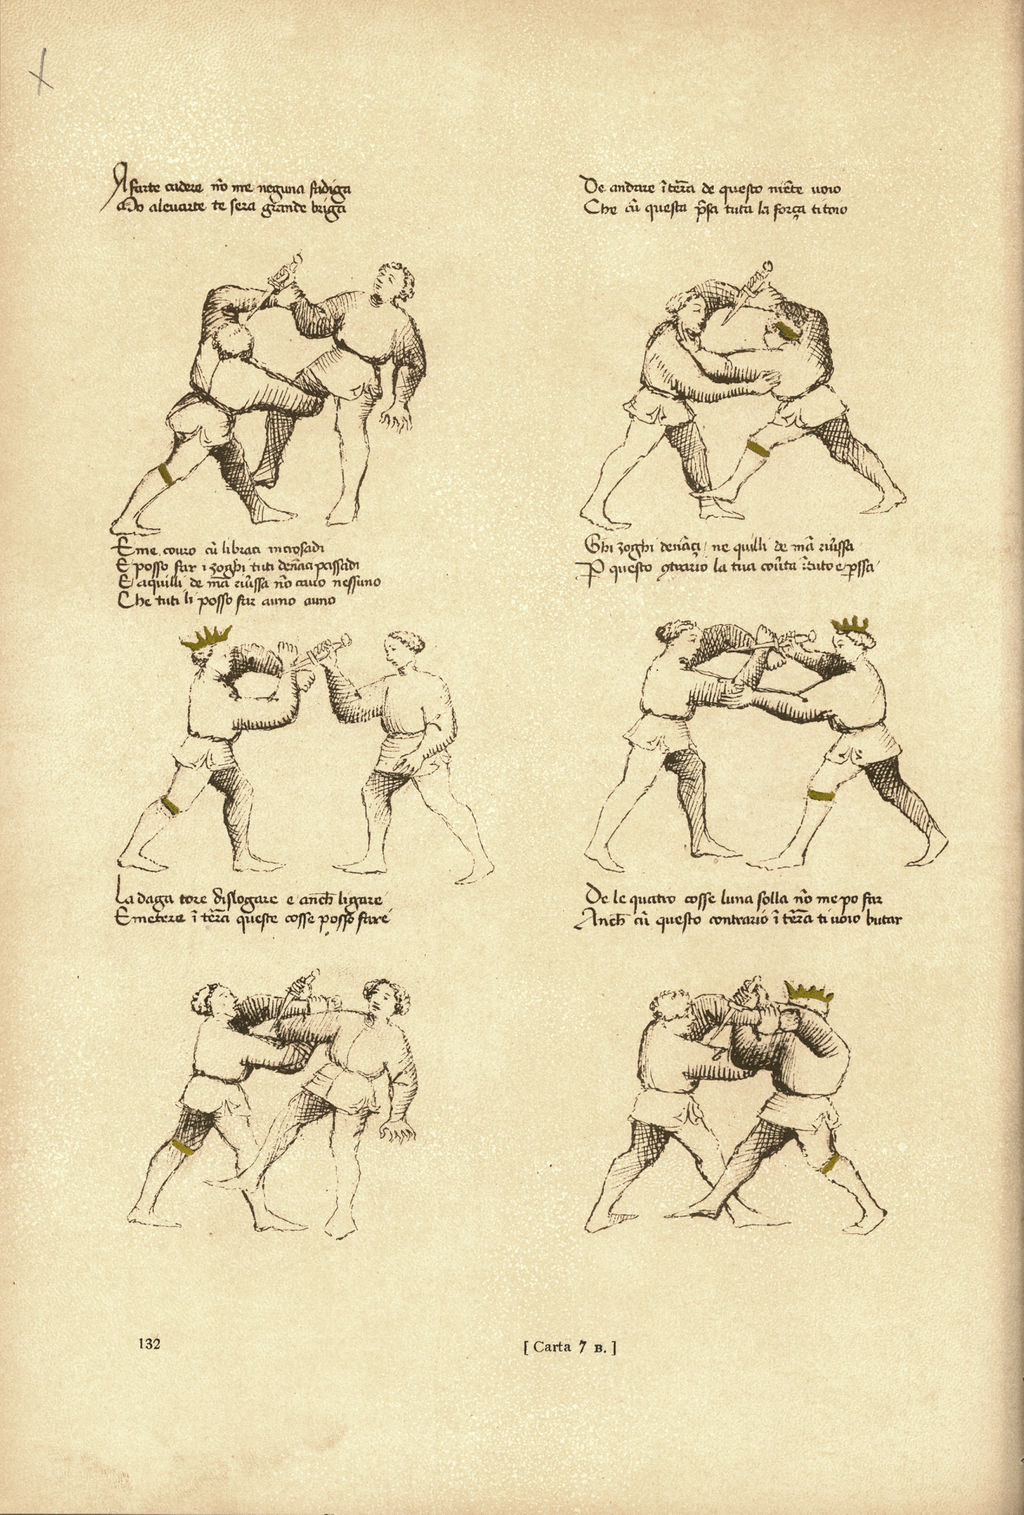 A farte cadere no me neguna fadiga
Mo alevarte te sera grande briga
De andare i tera de questo niete voio
Che cu questa psa tuta la força ti toio
E me covro cu li braci incrosadi
E posso far i zoghi tuti denaci passadi
E aquilli de ma riversa no cavo nessuno
Che tuti li posso far a uno a uno
Ghi zoghi denaci ne quilli de ma riversa
P questo contrario la tua coverta e persa
La daga tore dislogare e anch ligare
E metere i tera queste cosse posso fare
De le quatro cosse l una solla no me po far
Anch cu questo contrario i tera ti voio butar
132
[ Carta 7 B. ]